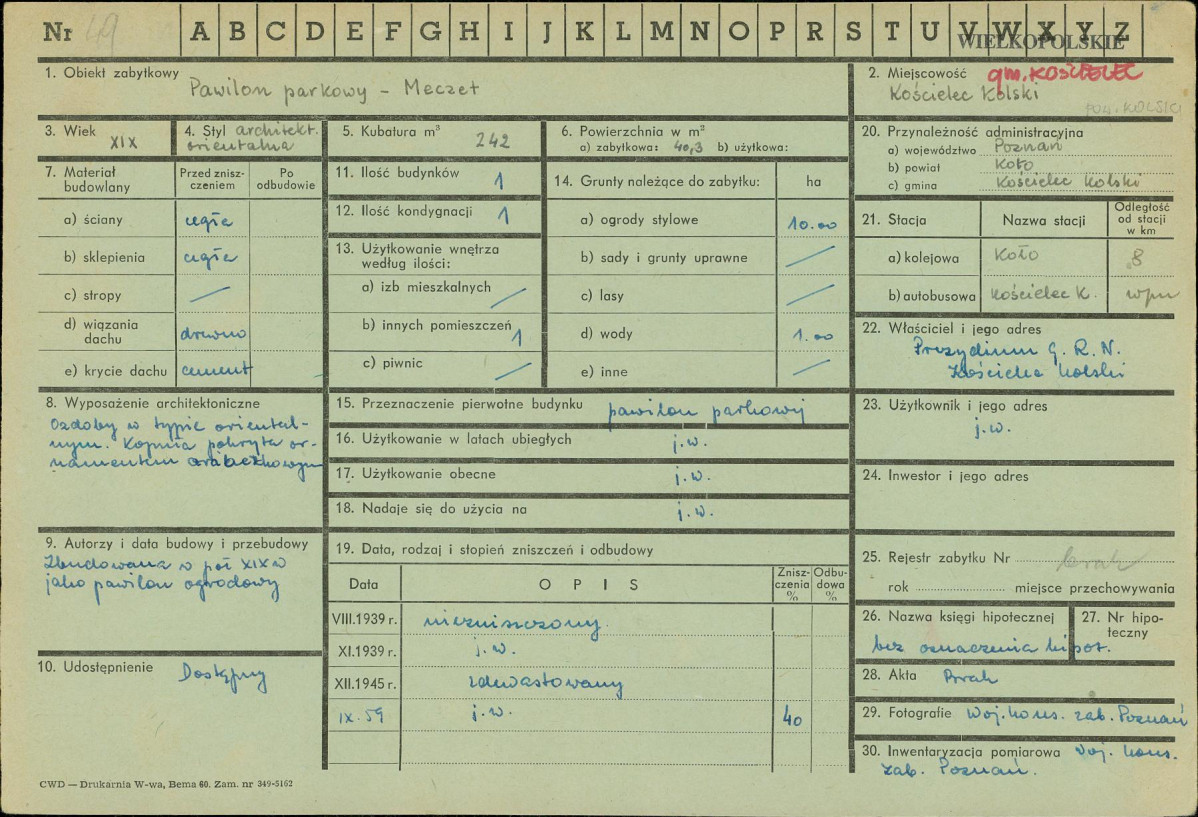 Nr 49 A B C D E F G H I J K L M N O P R S T U V W X Y Z
WIELKOPOLSKIE
1. Obiekt zabytkowy
Pawilon parkowy - Meczet
2. Miejscowość gm. KOŚCIELEC
Kościelec Kolski
POW. KOLSKI
3. Wiek
XIX
4. Styl architekt.
orientalna
5. Kubatura m³
242
6. Powierzchnia w m²
a) zabytkowa: 40,3 b) użytkowa:
7. Materiał budowlany
Przed zniszczeniem
Po odbudowie
a) ściany cegła
b) sklepienia cegła
c) stropy /
d) wiązania dachu drewno
e) krycie dachu cement
8. Wyposażenie architektoniczne
Ozdoby w typie oriental-
nym. Kopuła pokryta or-
namentem arabeskowym
9. Autorzy i data budowy i przebudowy
Zbudowana w poł XIX w
jako pawilon ogrodowy
10. Udostępnienie Dostępny
11. Ilość budynków 1
12. Ilość kondygnacji 1
13. Użytkowanie wnętrza
według ilości:
a) izb mieszkalnych /
b) innych pomieszczeń 1
c) piwnic /
14. Grunty należące do zabytku: ha
a) ogrody stylowe 10.00
b) sady i grunty uprawne /
c) lasy /
d) wody 1.00
e) inne /
15. Przeznaczenie pierwotne budynku pawilon parkowy
16. Użytkowanie w latach ubiegłych j.w.
17. Użytkowanie obecne j.w.
18. Nadaje się do użycia na j.w.
19. Data, rodzaj i stopień zniszczeń i odbudowy
Data OPIS Zniszczenia % Odbudowa %
VIII.1939 r. niezniszczony
XI.1939 r. j.w.
XII.1945 r. zdewastowany
IX.59 j.w. 40
20. Przynależność administracyjna
a) województwo Poznań
b) powiat Koło
c) gmina Kościelec Kolski
21. Stacja Nazwa stacji Odległość od stacji w km
a) kolejowa Koło 8
b) autobusowa Kościelec K.
22. Właściciel i jego adres
Prezydium G.R.N.
Kościelec Kolski
23. Użytkownik i jego adres
j.w.
24. Inwestor i jego adres
25. Rejestr zabytku Nr brak
rok miejsce przechowywania
26. Nazwa księgi hipotecznej
27. Nr hipoteczny
bez oznaczenia hipot.
28. Akta Brak
29. Fotografie Woj. kons. zab. Poznań
30. Inwentaryzacja pomiarowa Woj. kons.
zab. Poznań.
CWD — Drukarnia W-wa, Bema 60. Zam. nr 349-5162